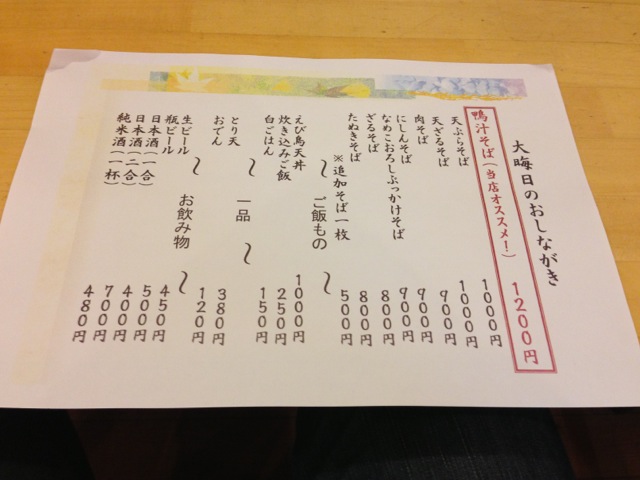 大晦日のおしながき
鴨汁そば(当店オススメ!) 1200円
天ぷらそば 1000円
天ざるそば 1000円
肉そば 900円
にしんそば 900円
なめこおろしぶっかけそば 900円
ざるそば 800円
たぬきそば 800円
※追加そば一枚 500円
~ご飯もの~
えび鳥天丼 1000円
炊き込みご飯 250円
白ごはん 150円
~一品~
とり天 380円
おでん 120円
~お飲み物~
生ビール 450円
瓶ビール 500円
日本酒(一合) 400円
日本酒(二合) 700円
純米酒(一杯) 480円